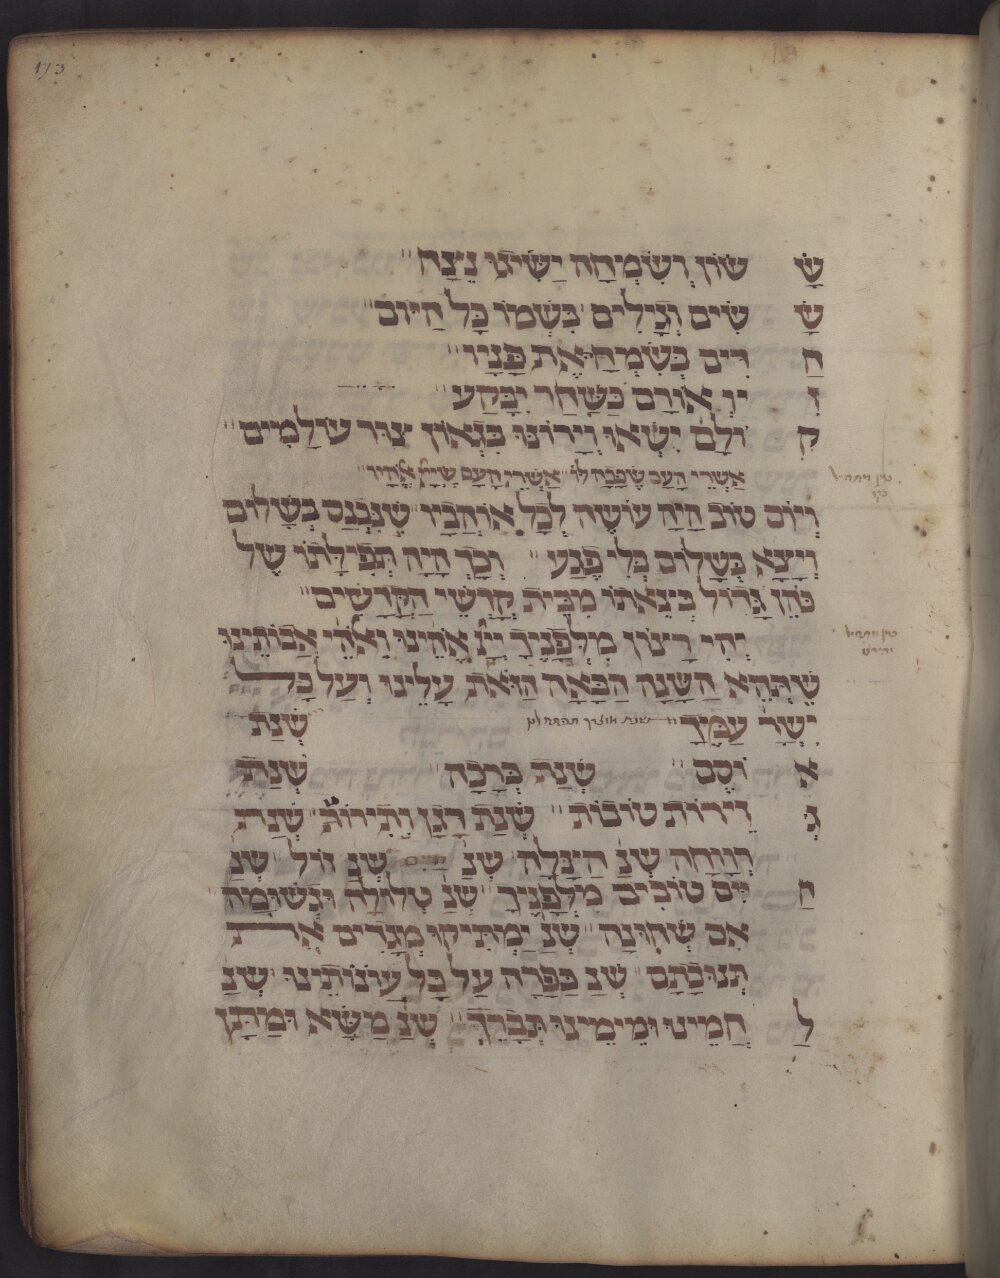 173
שָׂ שׂוֹן וְשִׂמְחָה יַשִּׂיגוּ נֵצַח
שָׂ שִׂים וְגָלִים כִּשְׁמוֹ כָּל הַיּוֹם
חַ דִּים בְּשִׂמְחָה אֶת פָּנָיו
זִ יו אוֹרָם כַּשַּׁחַר יִבָּקַע
ק וֹלָם יִשְׂאוּ וְיָרוֹנוּ בִּגְאוֹן צוּר עוֹלָמִים
אַשְׁרֵי הָעָם שֶׁכָּכָה לּוֹ אַשְׁרֵי הָעָם שֶׁיְיָ אֱלֹהָיו
וְיוֹם טוֹב הָיָה עוֹשֶׂה לְכָל אוֹהֲבָיו שֶׁנִּכְנַס בְּשָׁלוֹם
וְיָצָא בְּשָׁלוֹם בְּלִי פֶגַע וְכָךְ הָיָה תְּפִילָתוֹ שֶׁל
כֹּהֵן גָּדוֹל בְּצֵאתוֹ מִבֵּית קָדְשֵׁי הַקֳּדָשִׁים
יְהִי רָצוֹן מִלְּפָנֶיךָ יְיָ אֱלֹהֵינוּ וֵאלֹהֵי אֲבוֹתֵינוּ
שֶׁתְּהֵא הַשָּׁנָה הַבָּאָה הַזֹּאת עָלֵינוּ וְעַל כָּל
יִשְׂרָ עַמֶּךָ שנת אוצרך תפתח לנו שְׁנַת
א וֹסֶם שְׁנַת בְּרָכָה שְׁנַת
גְּ דֵירוֹת טוֹבוֹת שְׁנַת דָּגָן וְתִירוֹשׁ שְׁנַת
רְוָוחָה שְׁנַ הַצְלָחָה שְׁנַ שְׁנַ זוֹל שְׁנַ
חַ יִּים טוֹבִים מִלְּפָנֶיךָ שְׁנַ טְלוּלָה וּגְשׁוּמָה
אִם שְׁחוּנָה שְׁנַ יַמְתִּיקוּ מְגָדִים אֶת
תְּנוּבָתָם שְׁנַ כַּפָּרָה עַל כָּל עֲוֹנוֹתֵינוּ שְׁנַ
לַ חְמֵינוּ וּמֵימֵינוּ תְּבָרֵךְ שְׁנַ מַשָּׂא וּמַתָּן